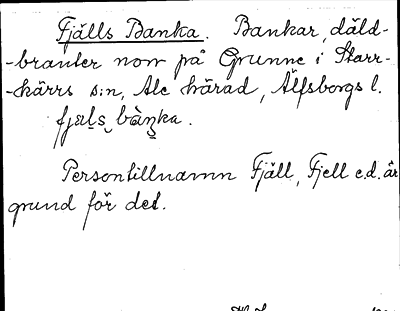 Fjälls Banka. Bankar, däld-
-branter norr på Grunne i Starr-
-kärrs s:n, Ale härad, Älfsborgs l.
fjæls bànka.
Persontillnamn Fjäll, Fjell e.d. är
grund för det.